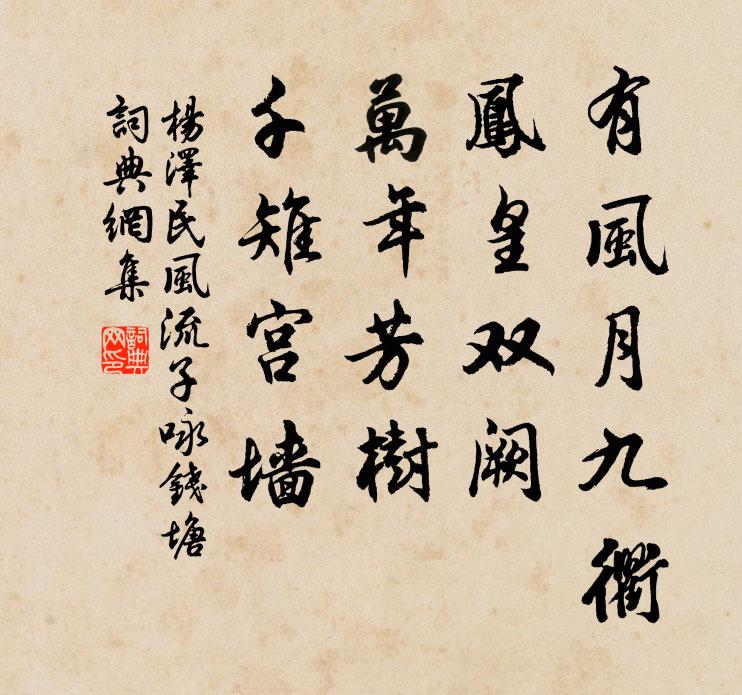 有風月九衢
鳳皇双阙
萬年芳樹
千雉宫墙
楊澤民風流子咏錢塘
詞典網集
詞典网印